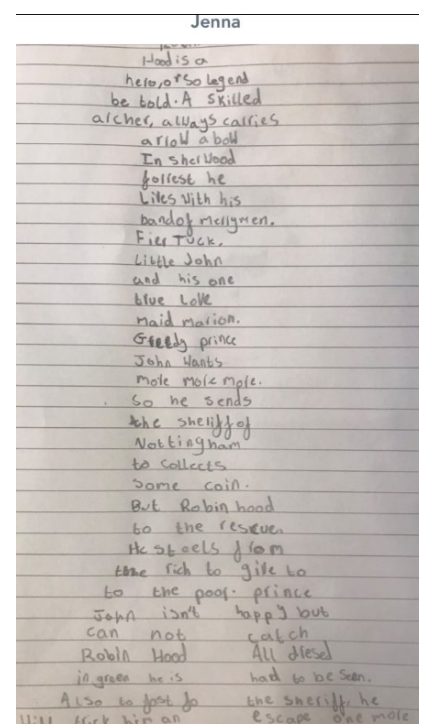 Jenna
Hood is a
hero, or so legend
be told. A skilled
archer, always carries
arrow a bow
In sherwood
forrest he
Lives with his
band of merrymen.
Fier Tuck,
Little John
and his one
true Love
Maid marion.
Greedy prince
John wants
more more more.
So he sends
the sheriff of
Nottingham
to collects
some coin.
But Robin hood
to the rescue.
He steels from
the rich to give to
to the poor. prince
John isn't happy but
can not catch
Robin Hood All dresed
in green he is hard to be seen.
Also to fast fo the sheriff. he
will trick him an escape one more